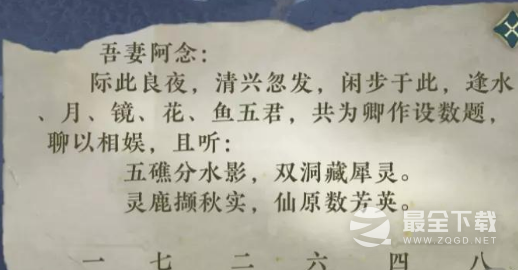 吾妻阿念：
际此良夜，清兴忽发，闲步于此，逢水
、月、镜、花、鱼五君，共为卿作设数题，
聊以相娱，且听：
五礁分水影，双洞藏犀灵。
灵鹿撷秋实，仙原数芳英。
一 七 二 六 四 八
最全下载
WWW.ZQGD.NET